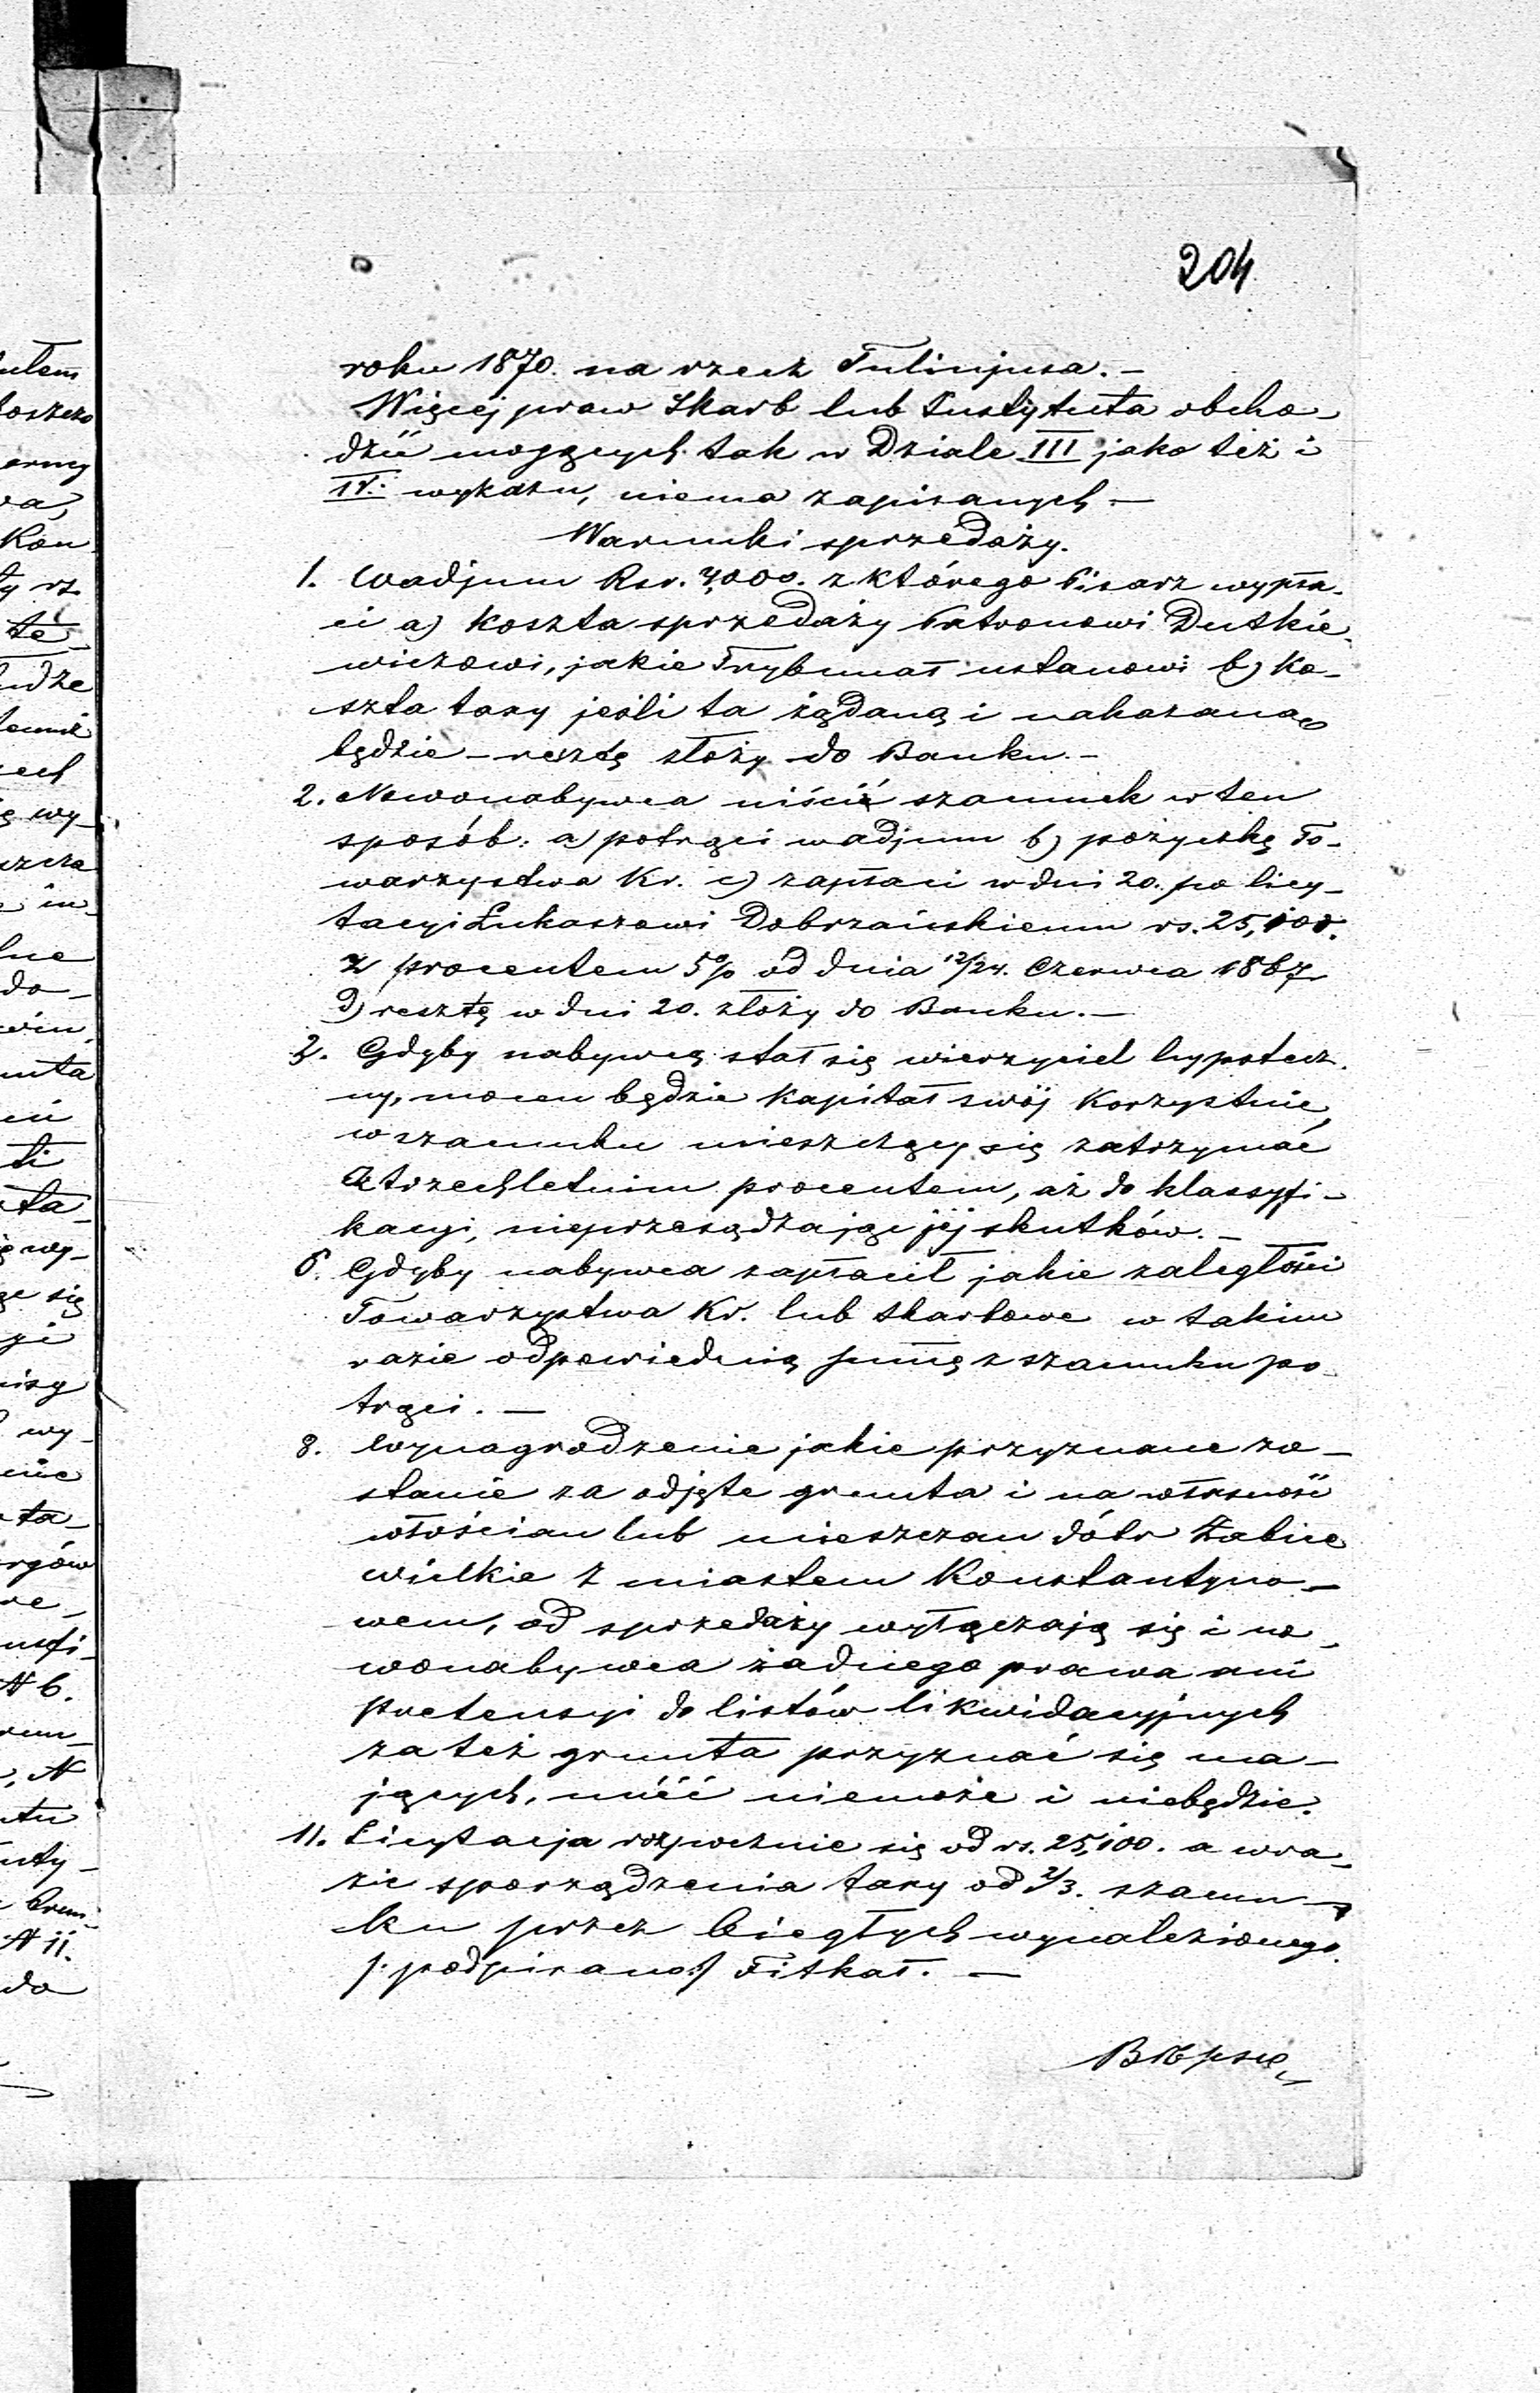 204
roku 1870. na rzecz Tulinjusa. –
Więcej praw Skarb lub Instytuta obcho-
dzić mogących tak w Dziale III jako też i
IV. wykazu, niema zapisanych –
Warunki sprzedaży.
1. Wadjum Rsr. 4,000. z którego Pisarz wypła-
ci a) koszta sprzedaży Patronowi Dutkie-
wiczowi, jakie Trybunał ustanowi b) ko-
szta taxy jeśli ta żądaną i nakazaną
będzie – resztę złoży do Banku. –
2. Nowonabywca uiści szacunek w ten
sposób: a) potrąci wadjum b) pożyczkę To-
warzystwa Kr. c) zapłaci w dni 20. po licy-
tacyi Łukaszowi Dobrzańskiemu rs. 25,100.
z procentem 5% od dnia 12/24. Czerwca 1867
d) resztę w dni 20. złoży do Banku. –
3. Gdyby nabywcą stał się wierzyciel hypotecz-
ny, mocen będzie kapitał swój korzystnie
w szacunku mieszczący się zatrzymać
z trzechletnim procentem, aż do klassyfi-
kacyi, nieprzesądzając jéj skutków. –
6. Gdyby nabywca zapłacił jakie zaległości
Towarzystwa Kr. lub skarbowe w takim
razie odpowiednią summę z szacunku po-
trąci. –
8. Wynagrodzenie jakie przyznane zo-
stanie za odjęte grunta i na własność
włościan lub mieszczan dóbr Żabice
wielkie z miastem Konstantyno-
wem, od sprzedaży wyłączają się i no-
wonabywca żadnego prawa ani
pretensyi do listów likwidacyjnych
za też grunta przyznać się ma-
jących, mieć niemoże i niebędzie.
11. Licytacja rozpocznie się od rs. 25,100. a w ra-
zie sporządzenia taxy od 2/3. szacun-
ku przez biegłych wynalezionego.
/: podpisano :/ Fitkał. –